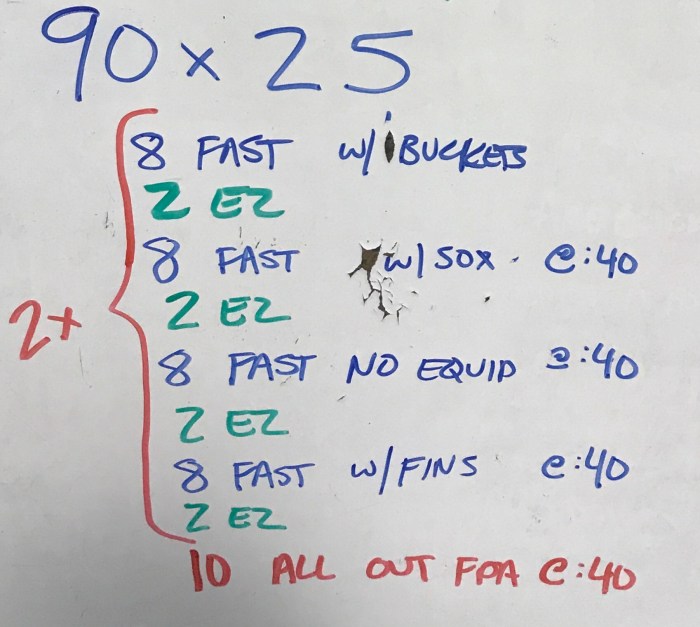 90 x 25
8 FAST w/ BUCKETS
2 EZ
8 FAST w/ SOX @ :40
2 EZ
2x
8 FAST NO EQUIP @ :40
2 EZ
8 FAST w/ FINS @ :40
2 EZ
10 ALL OUT FOR @ :40